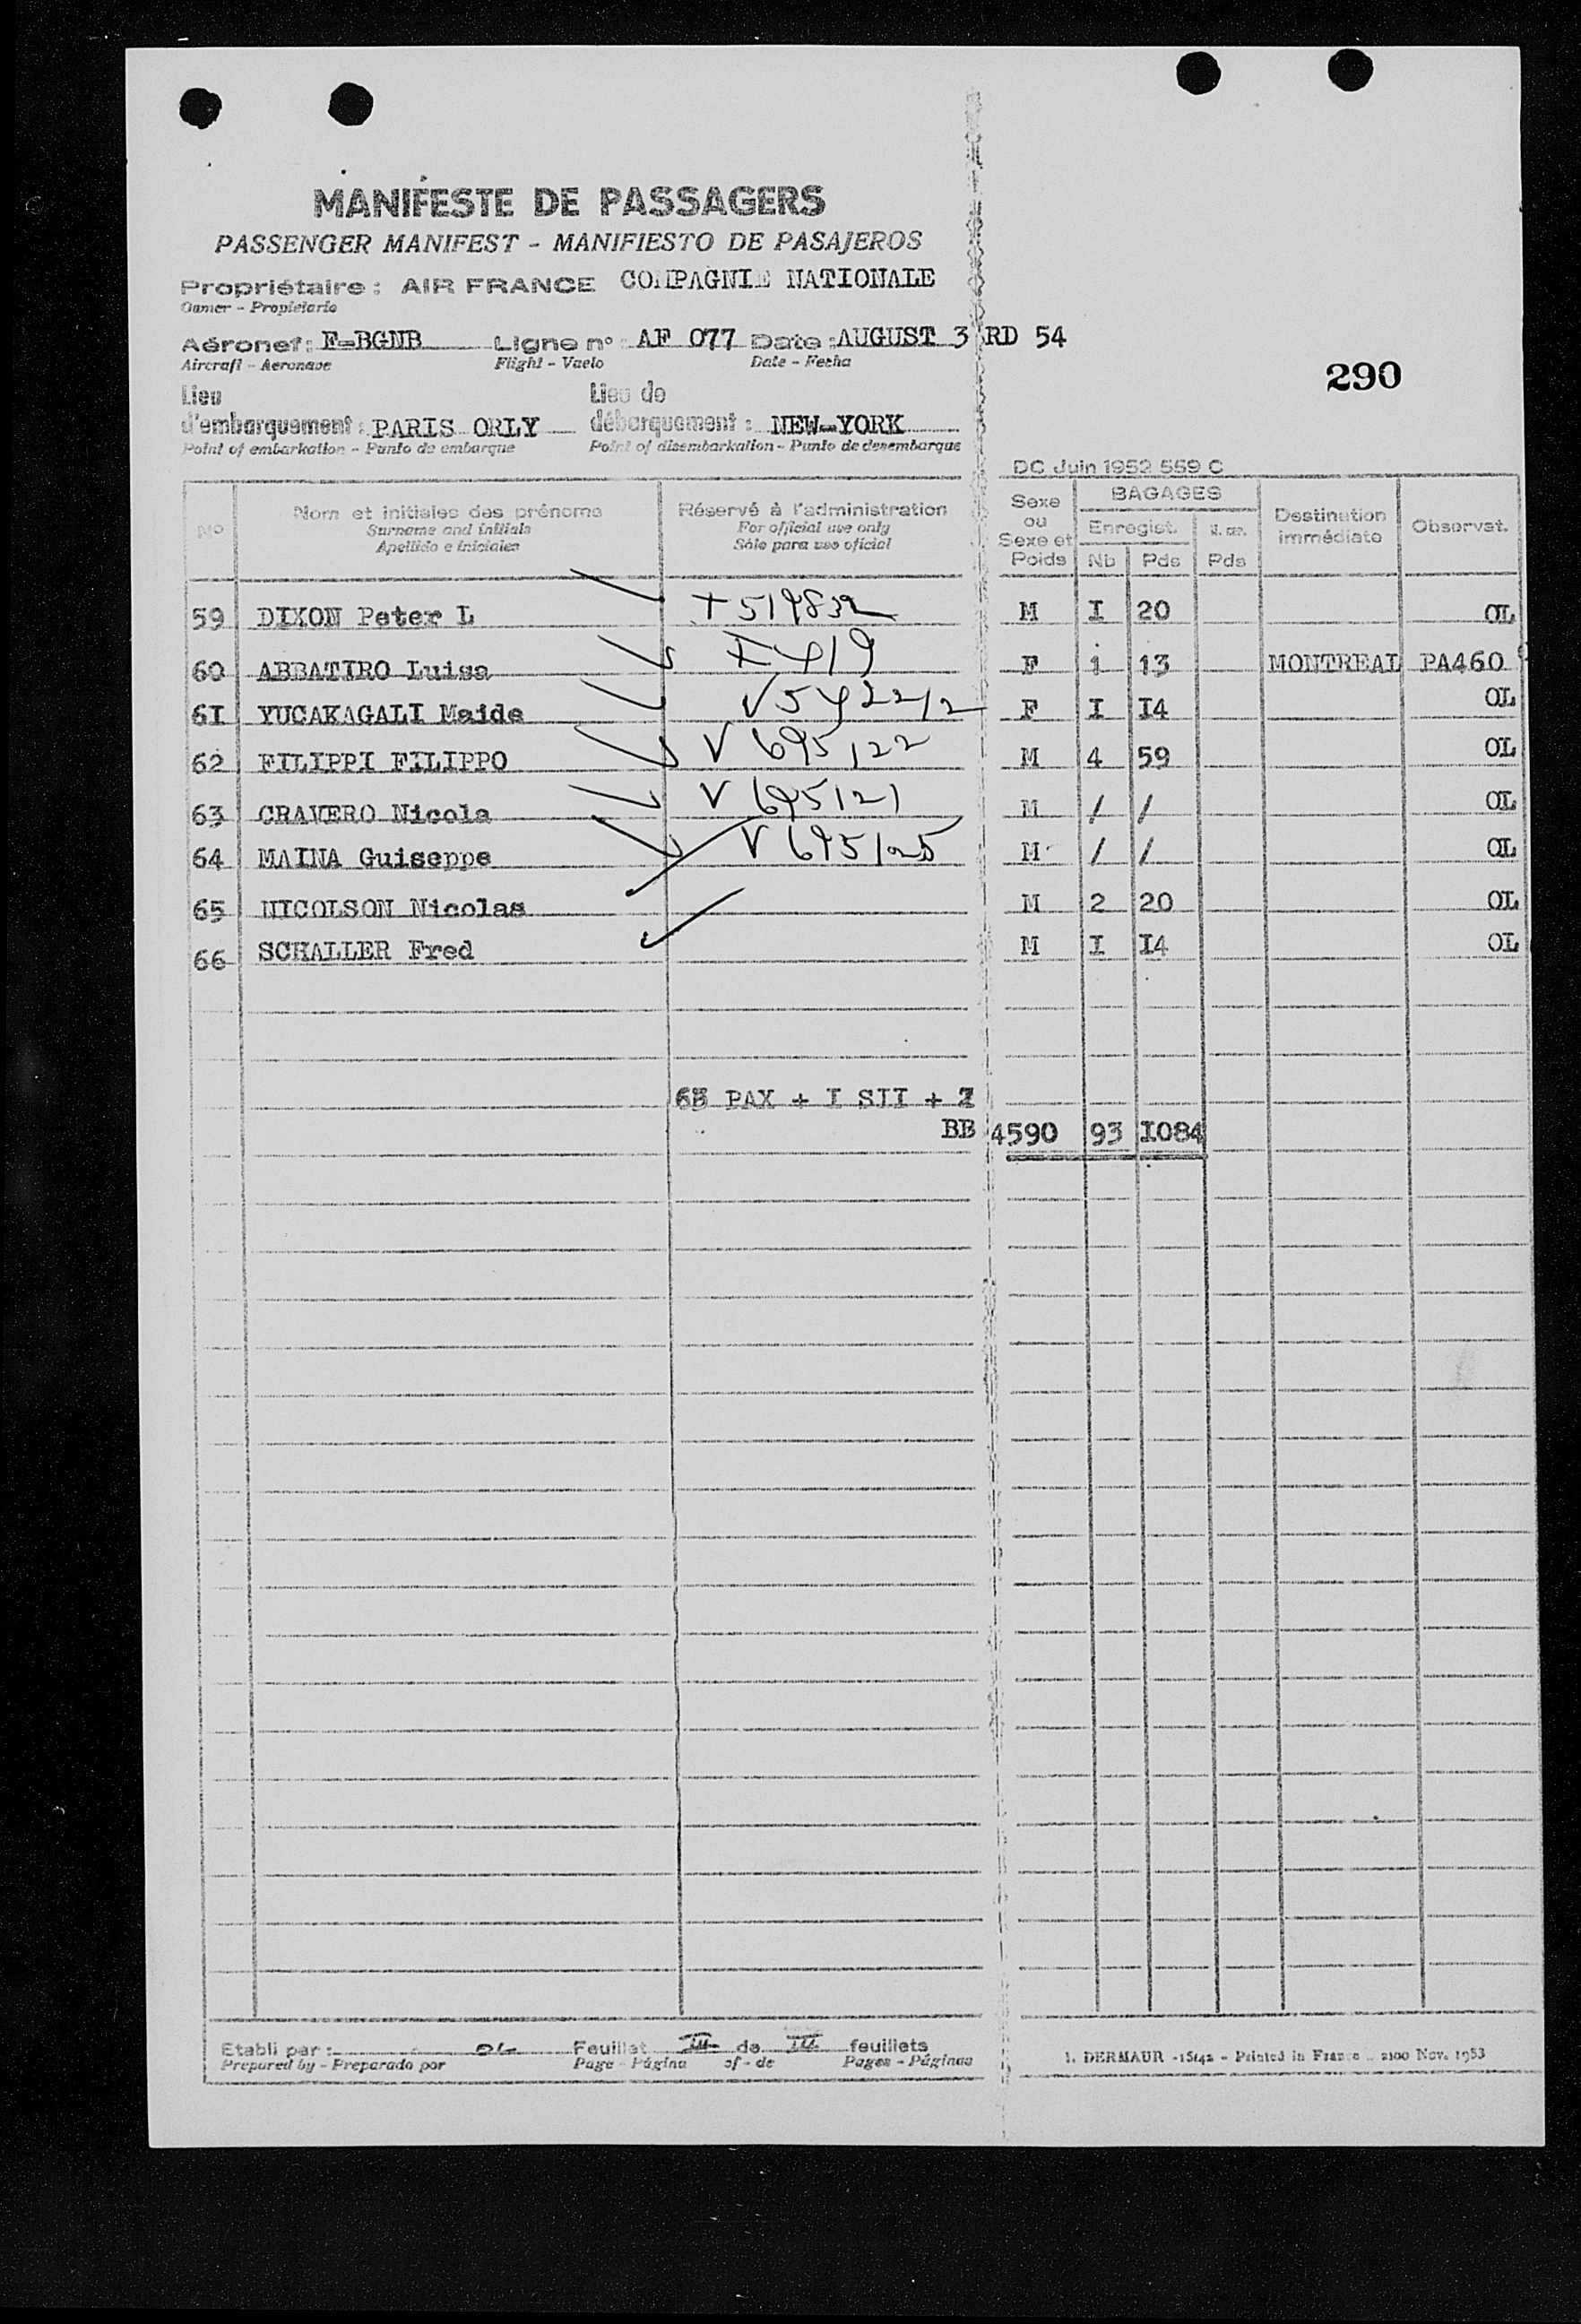 MANIFESTE DE PASSAGERS
PASSENGER MANIFEST - MANIFIESTO DE PASAJEROS
Propriétaire : AIR FRANCE COMPAGNIE NATIONALE
Owner - Propietario
Aéronef : F-BGNB Ligne n° : AF 077 Date : AUGUST 3 RD 54
Aircraft - Aeronave Flight - Vuelo Date - Fecha
290
Lieu d'embarquement : PARIS ORLY Lieu de débarquement : NEW-YORK
Point of embarkation - Punto de embarque Point of disembarkation - Punto de desembarque
DC Juin 1952 559 C
No Nom et initiales des prénoms Réservé à l'administration Sexe ou Sexe et Poids BAGAGES Destination immédiate Observat.
Surname and initials For official use only Enregist.
Apellido e iniciales Sólo para uso oficial Nb Pds Pds
59 DIXON Peter L M I 20 OL
60 ABBATIRO Luisa M I 419 F 1 13 MONTREAL PA460
61 YUCAKAGALI Maide V 542212 F I I4 OL
62 FILIPPI FILIPPO V 695122 M 4 59 OL
63 CRAVERO Nicola V 695121 M / / OL
64 MAINA Guiseppe V 695125 M / / OL
65 NICOLSON Nicolas M 2 20 OL
66 SCHALLER Fred M I I4 OL
PAX + I SII +
BB 4590 93 I084
Etabli par : OL Feuillet III de III feuillets
Prepared by - Preparado por Page - Página of - de Pages - Páginas
I. DERMAUR - Printed in France - 2100 Nov. 1953